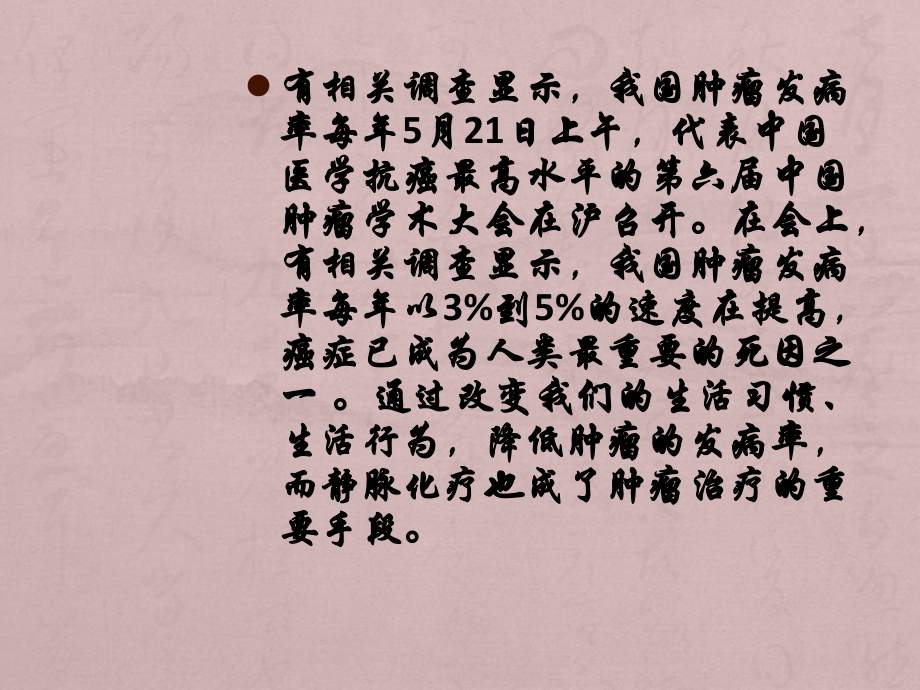 有相关调查显示，我国肿瘤发病
率每年5月21日上午，代表中国
医学抗癌最高水平的第六届中国
肿瘤学术大会在沪召开。在会上，
有相关调查显示，我国肿瘤发病
率每年以3%到5%的速度在提高，
癌症已成为人类最重要的死因之
一 。通过改变我们的生活习惯、
生活行为，降低肿瘤的发病率，
而静脉化疗也成了肿瘤治疗的重
要手段。